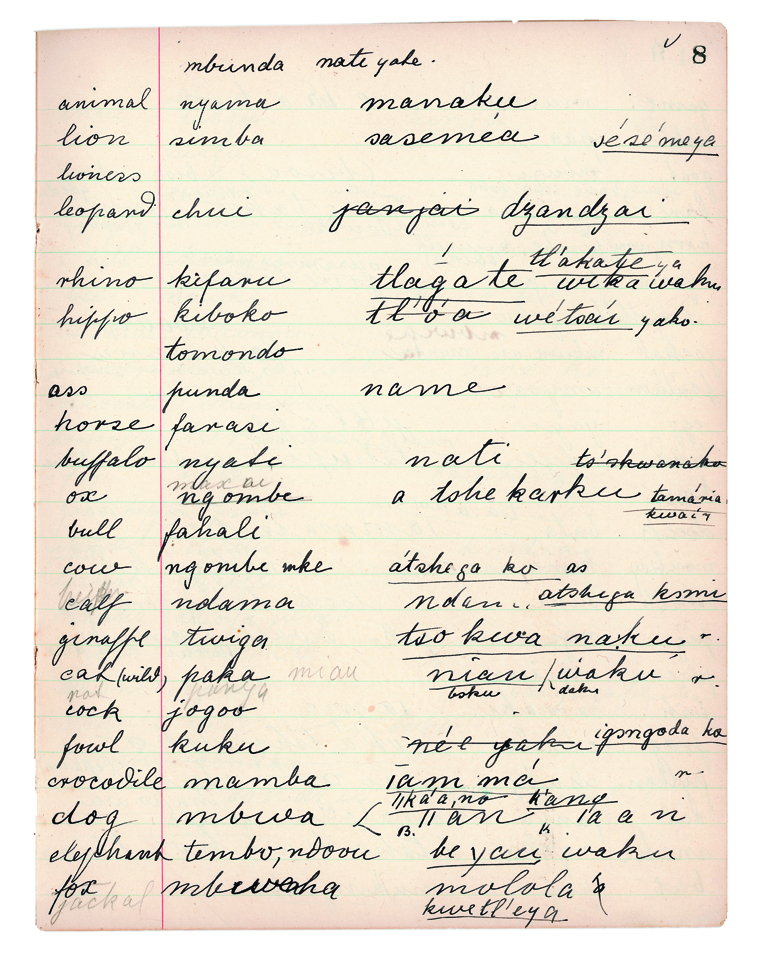 8
mbunda nati yake.
animal nyama manaku
lion simba saseméa sésémeya
lioness
leopard chui janjai dzandzai
tl'akate ya
rhino kifaru tlágate wika waku
hippo kiboko tl'óa wétsái yako.
tomondo
ass punda name
horse farasi
buffalo nyati nati ts'skwanako
ox ngombe a tshe karku tamária
bull fahali
cow ngombe mke átshega ko as
calf ndama atshega komi
giraffe twiga tso kwa naku r.
cat (wild) paka miau niau / waku r.
rat panya boku daku
cock jogoo
fowl kuku née yaku igongoda ko
crocodile mamba iam má r
dog mbwa
elephant tembo, ndovu be yau waku
fox molola
jackal kwetl'eya